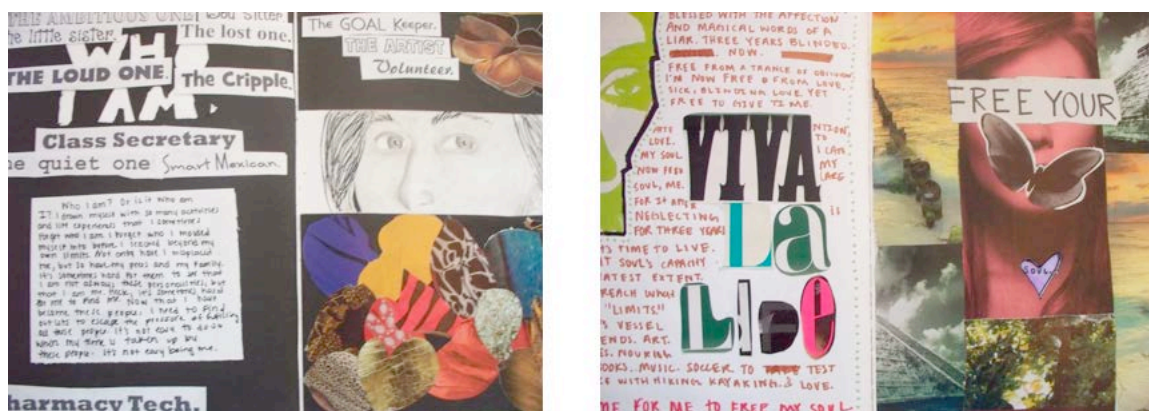 THE AMBITIOUS ONE
the little sister.
The lost one.
WHO
I AM.
THE LOUD ONE.
The Cripple.
Class Secretary
he quiet one Smart Mexican.
Who I am? Or is it Who am
I? I drown myself with so many activities
and life experiences that I sometimes
forget who I am. I forget who I molded
myself into before I stepped beyond my
own limits. Not only have I misplaced
me, but so have my peers and my family.
It's sometimes hard for them to see that
I am not always these personalities, but
that I am me. Heck, it's sometimes hard
for me to find me. Now that I have
became these people. I need to find
outlets to escape the pressure of
all these people. It's not easy to do so
when my time is taken up by
these people. It's not easy being me.
harmacy Tech.
The GOAL Keeper.
THE ARTIST
Volunteer.
BLESSED WITH THE AFFECTION
AND MAGICAL WORDS OF A
LIAR. THREE YEARS BLINDED.
NOW.
FREE FROM A TRANCE OF OBLIVION
I'M NOW FREE FROM LOVE,
SICK, BLINDING LOVE. YET
FREE TO GIVE TO ME.
LOVE.
MY SOUL
NOW FREE
SOUL, ME.
FOR IT AFTER
NEGLECTING
FOR THREE YEARS
NTION,
TO
I CAN
MY
CARE
IS
VIVA
La
LIDe
'S TIME TO LIVE.
IT SOUL'S CAPACITY
EATEST EXTENT.
REACH WHAT
"LIMITS."
'S VESSEL
ENDS. ART.
ES. NOURISH
OOKS. MUSIC. SOCCER TO TEST
CE WITH HIKING KAYAKING & LOVE.
ME FOR ME TO FREE MY SOUL
FREE YOUR
SOUL